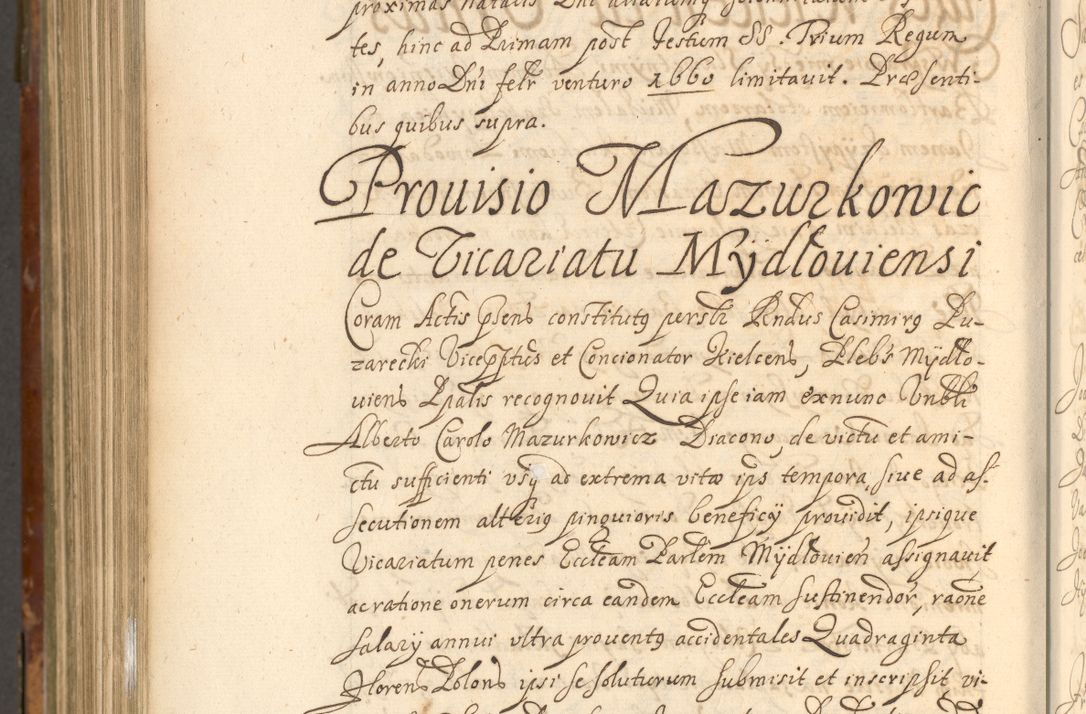 tes, hinc ad Primam post Festum SS. Trium Regum
in anno Dni felr venturo 1660 limitavit. Præsenti-
bus quibus supra.
Prouisio Mazurkowic
de Vicariatu Mÿdłouiensi
Coram Actis psens constitutq persli Rndus Casimirq Pu-
zarecki Vicepptus et Concionator Kielcens, Plebs Mÿdło-
uiens Ppalis recognouit Quia ipse iam exnunc Vnbli
Alberto Carolo Mazurkowicz Diacono, de victu et ami-
ctu sufficienti vsq ad extrema vitæ ips tempora, siue ad as-
secutionem alterig pinguioris beneficÿ prouidit, ipsique
Vicariatum penes Eccleam Parlem Mÿdłouien assignauit
ac ratione onerum circa eandem Eccleam sustinendor, raone
salarÿ annui vltra prouentq accidentales Quadraginta
Florens Polons ipsi se soluturum submisit et inscripsit vi-